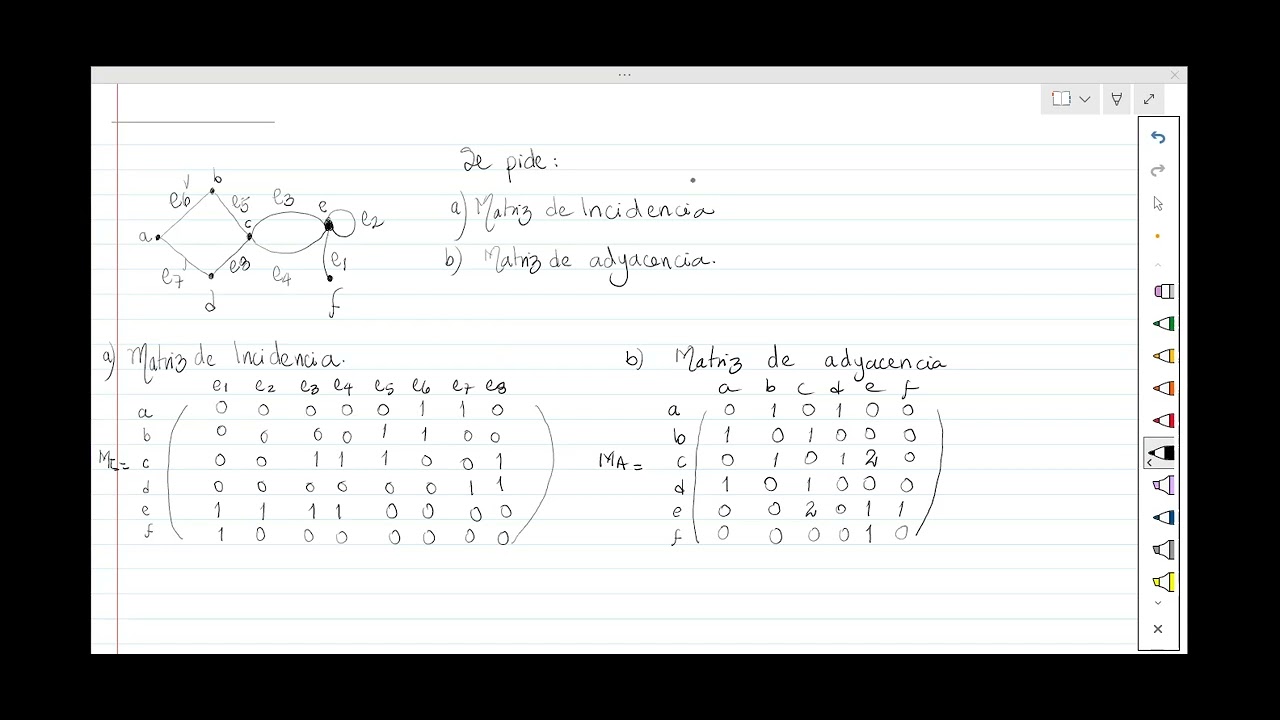 Se pide:
a) Matriz de Incidencia
b) Matriz de adyacencia.
b
e6
e5
e3
e
e2
a
c
e7
e8
e4
e1
d
f
a) Matriz de Incidencia.
e1 e2 e3 e4 e5 e6 e7 e8
a 0 0 0 0 0 1 1 0
b 0 0 0 0 1 1 0 0
MI= c 0 0 1 1 1 0 0 1
d 0 0 0 0 0 0 1 1
e 1 1 1 1 0 0 0 0
f 1 0 0 0 0 0 0 0
b) Matriz de adyacencia
a b c d e f
a 0 1 0 1 0 0
b 1 0 1 0 0 0
MA= c 0 1 0 1 2 0
d 1 0 1 0 0 0
e 0 0 2 0 1 1
f 0 0 0 0 1 0